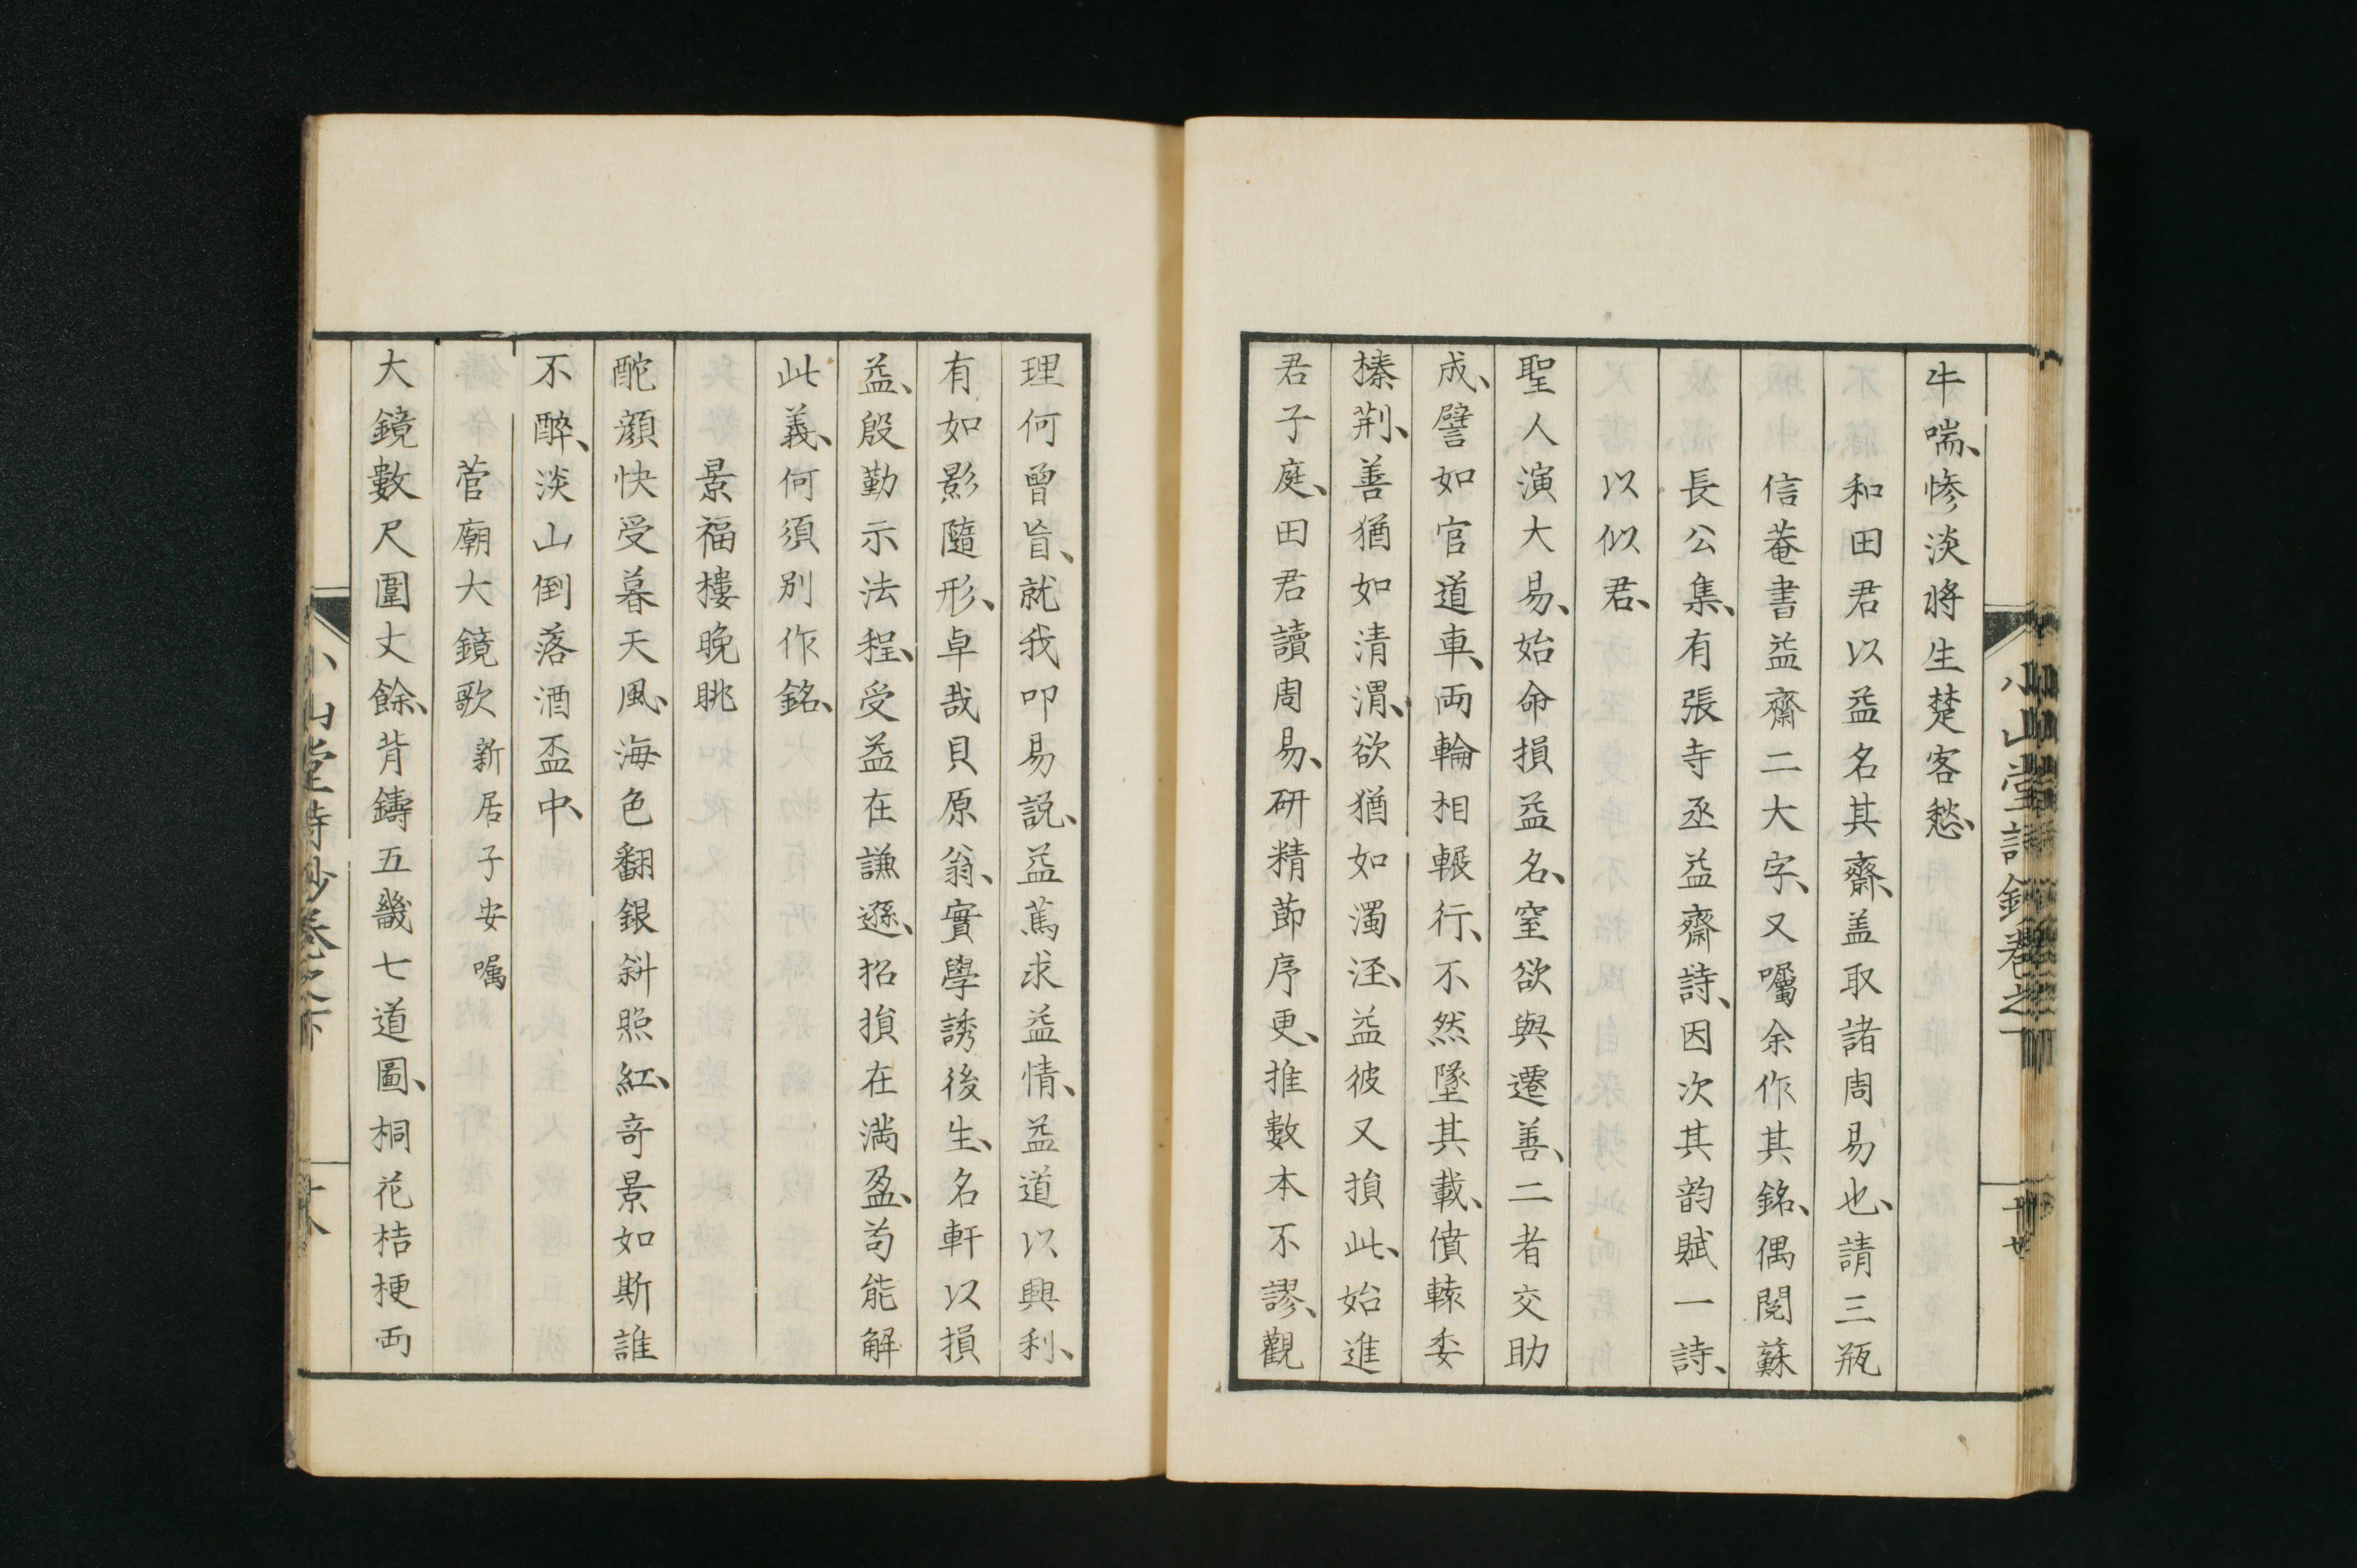 牛喘、惨淡將生楚客愁、
和田君以益名其齋、盖取諸周易也、請三瓶
信菴書益齋二大字、又囑余作其銘、偶閲蘇
長公集、有張寺丞益齋詩、因次其韵賦一詩、
以似君、
聖人演大易、始命損益名、窒欲與遷善、二者交助
成、譬如官道車、両輪相輾行、不然墜其載、僨轅委
榛荆、善猶如清渭、欲猶如濁涇、益彼又損此、始進
君子庭、田君讀周易、研精節序更、推數本不謬、觀
理何曽旨、就我叩易説、益篤求益情、益道以興利、
有如影隨形、卓哉貝原翁、實學誘後生、名軒以損
益、殷勤示法程、受益在謙遜、招損在満盈、苟能解
此義、何須別作銘、
景福樓晚眺
酡顔快受暮天風、海色翻銀斜照紅、奇景如斯誰
不醉、淡山倒落酒盃中、
菅廟大鏡歌 新居子安嘱
大鏡數尺圍丈餘、背鑄五畿七道圖、桐花桔梗両
小山堂詩鈔卷之下